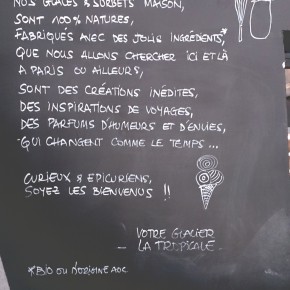 NOS GLACES & SORBETS MAISON,
SONT 100% NATURES,
FABRIQUÉS AVEC DES JOLIS INGRÉDIENTS*
QUE NOUS ALLONS CHERCHER ICI ET LÀ
A PARIS OU AILLEURS,
SONT DES CRÉATIONS INÉDITES,
DES INSPIRATIONS DE VOYAGES,
DES PARFUMS D'HUMEURS ET D'ENVIES,
QUI CHANGENT COMME LE TEMPS...
CURIEUX & EPICURIENS,
SOYEZ LES BIENVENUS !!
VOTRE GLACIER
- LA TROPICALE -
*BIO OU D'ORIGINE AOC